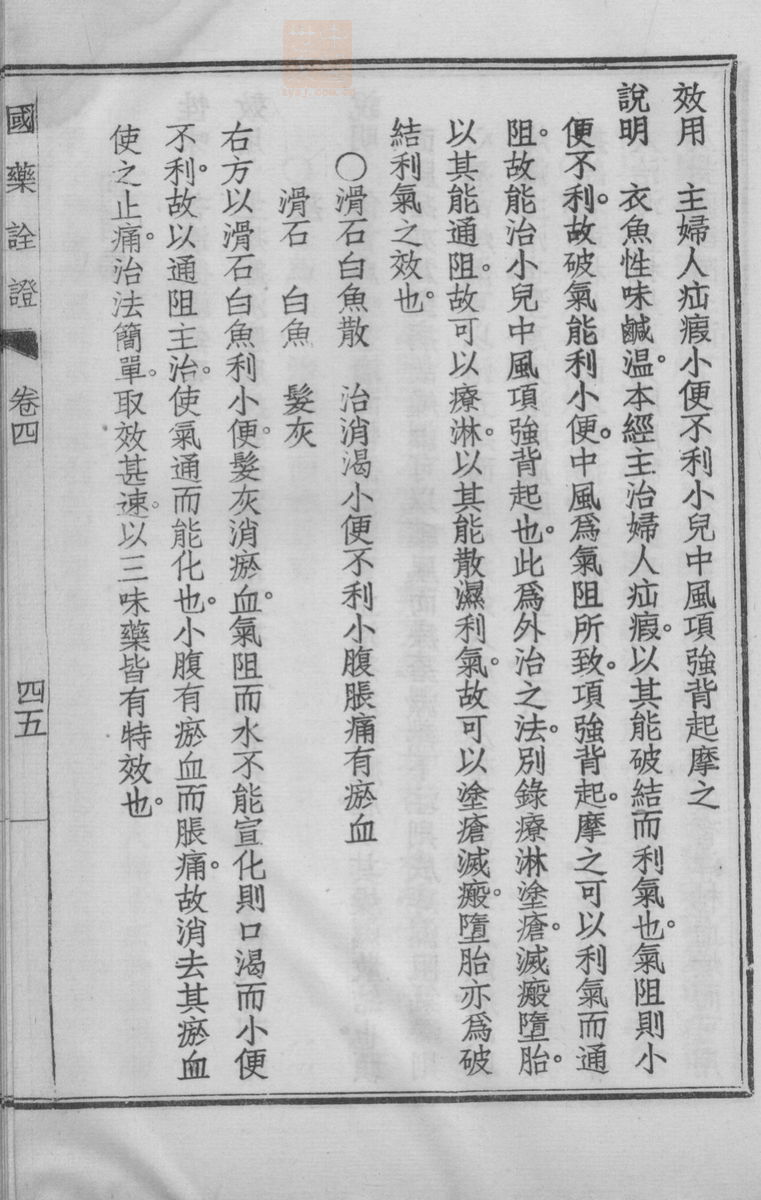 效用　主婦人疝瘕小便不利小兒中風項強背起摩之
說明　衣魚性味鹹温。本經主治婦人疝瘕。以其能破結而利氣也。氣阻則小
便不利。故破氣能利小便。中風爲氣阻所致。項強背起。摩之可以利氣而通
阻。故能治小兒中風項強背起也。此爲外治之法。別錄療淋塗瘡。滅瘢墮胎。
以其能通阻。故可以療淋。以其能散濕利氣。故可以塗瘡滅瘢。墮胎亦爲破
結利氣之效也。
○滑石白魚散　治消渴小便不利小腹脹痛有瘀血
滑石　白魚　髮灰
右方以滑石白魚利小便。髮灰消瘀血。氣阻而水不能宣化則口渴而小便
不利。故以通阻主治。使氣通而能化也。小腹有瘀血而脹痛。故消去其瘀血
使之止痛。治法簡單。取效甚速。以三味藥皆有特效也。
國藥詮證
卷四
四五